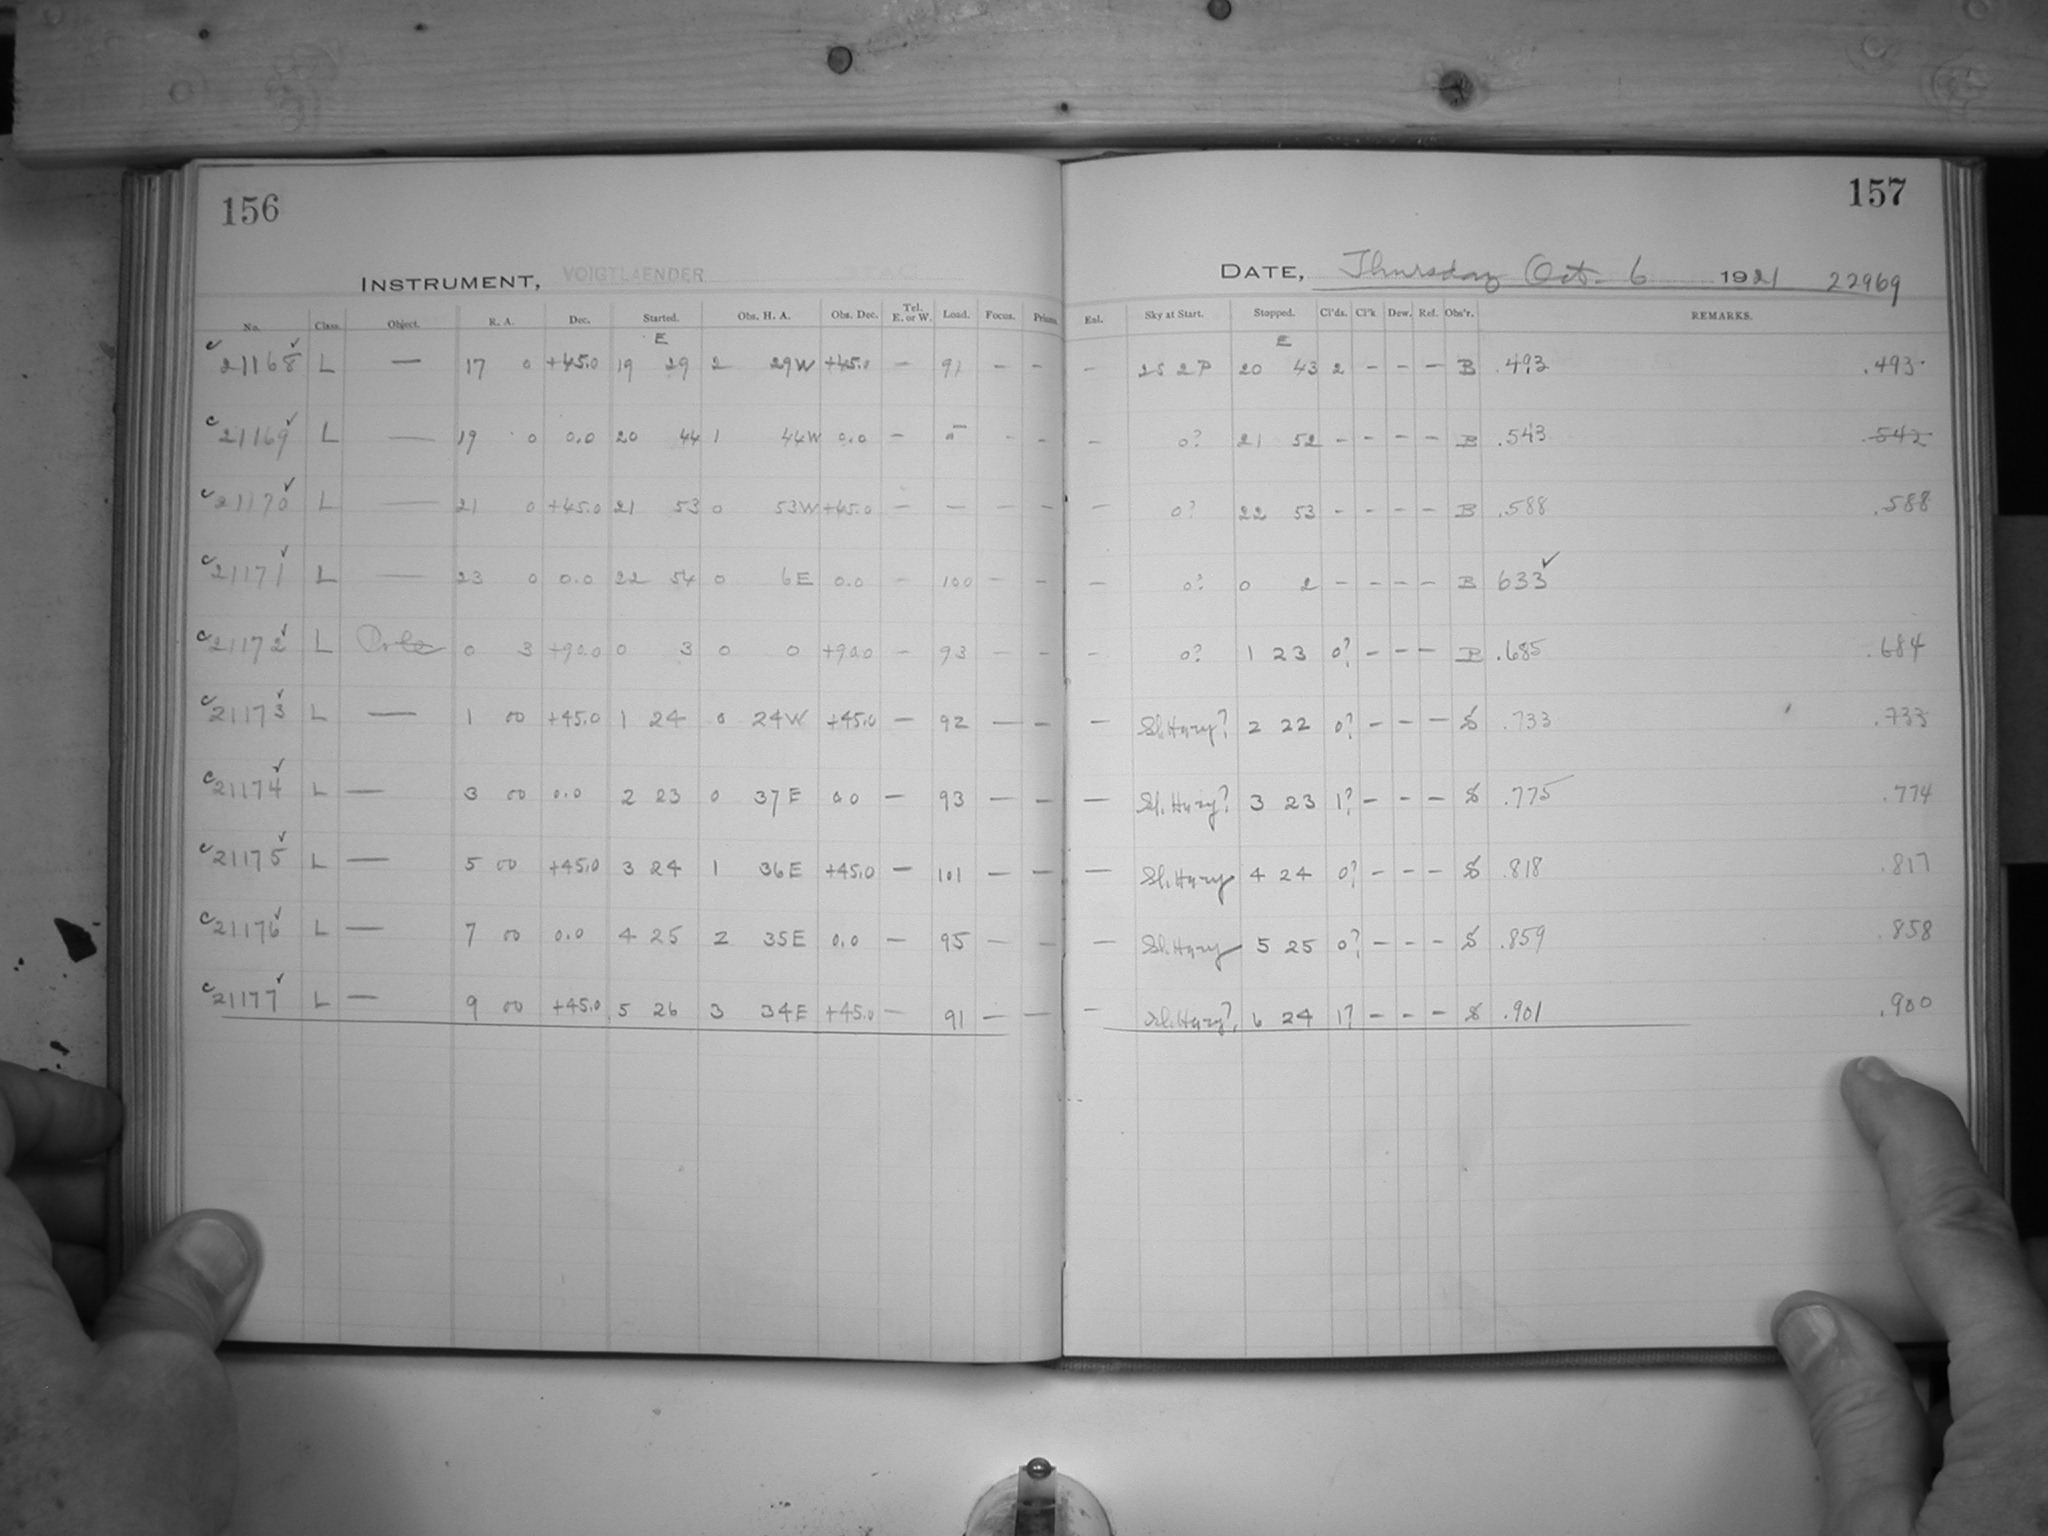 156
157
INSTRUMENT, VOIGTLAENDER
DATE, Thursday Oct. 6 1921 22969
No. Class. Object. R. A. Dec. Started. Obs. H. A. Obs. Dec. Tel. E. or W. Load. Focus. Prisms. Enl. Sky at Start. Stopped. Cl'ds. Cl'k Dew. Ref. Obs'r. REMARKS.
E E
c 21168 ✓ L — 17 0 +45.0 19 29 2 29W +45.0 — 91 — — — 2S 2P 20 43 2 — — — B .493 .493
c 21169 ✓ L — 19 0 0.0 20 44 1 44W 0.0 — — — — 0? 21 52 — — — — B .543 .542
c 21170 ✓ L — 21 0 +45.0 21 53 0 53W +45.0 — — — — — 0? 22 53 — — — — B .588 .588
c 21171 ✓ L — 23 0 0.0 22 54 0 6E 0.0 — 100 — — — 0? 0 2 — — — — B 633 ✓
c 21172 ✓ L Pole 0 3 +90.0 0 3 0 0 +90.0 — 93 — — — 0? 1 23 0? — — — B .685 .684
c 21173 ✓ L — 1 00 +45.0 1 24 0 24W +45.0 — 92 — — — Sl. Hazy? 2 22 0? — — — S .733 .733
c 21174 ✓ L — 3 00 0.0 2 23 0 37E 0.0 — 93 — — — Sl. Hazy? 3 23 1? — — — S .775 .774
c 21175 ✓ L — 5 00 +45.0 3 24 1 36E +45.0 — 101 — — — Sl. Hazy 4 24 0? — — — S .818 .817
c 21176 ✓ L — 7 00 0.0 4 25 2 35E 0.0 — 95 — — — Sl. Hazy 5 25 0? — — — S .859 .858
c 21177 ✓ L — 9 00 +45.0 5 26 3 34E +45.0 — 91 — — — Sl. Hazy? 6 24 1? — — — S .901 .900